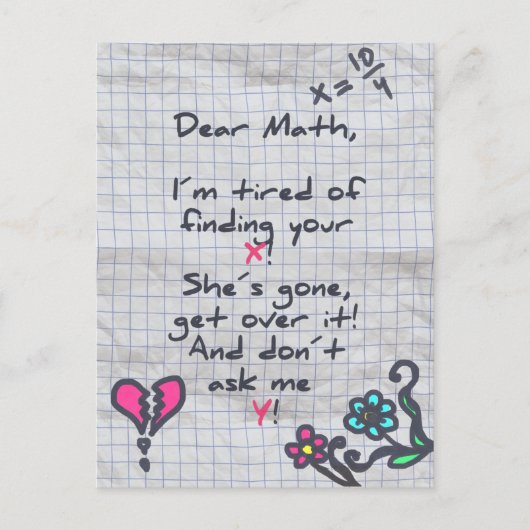 x = 10/4
Dear Math,
I´m tired of
finding your
X!
She´s gone,
get over it!
And don´t
ask me
Y!